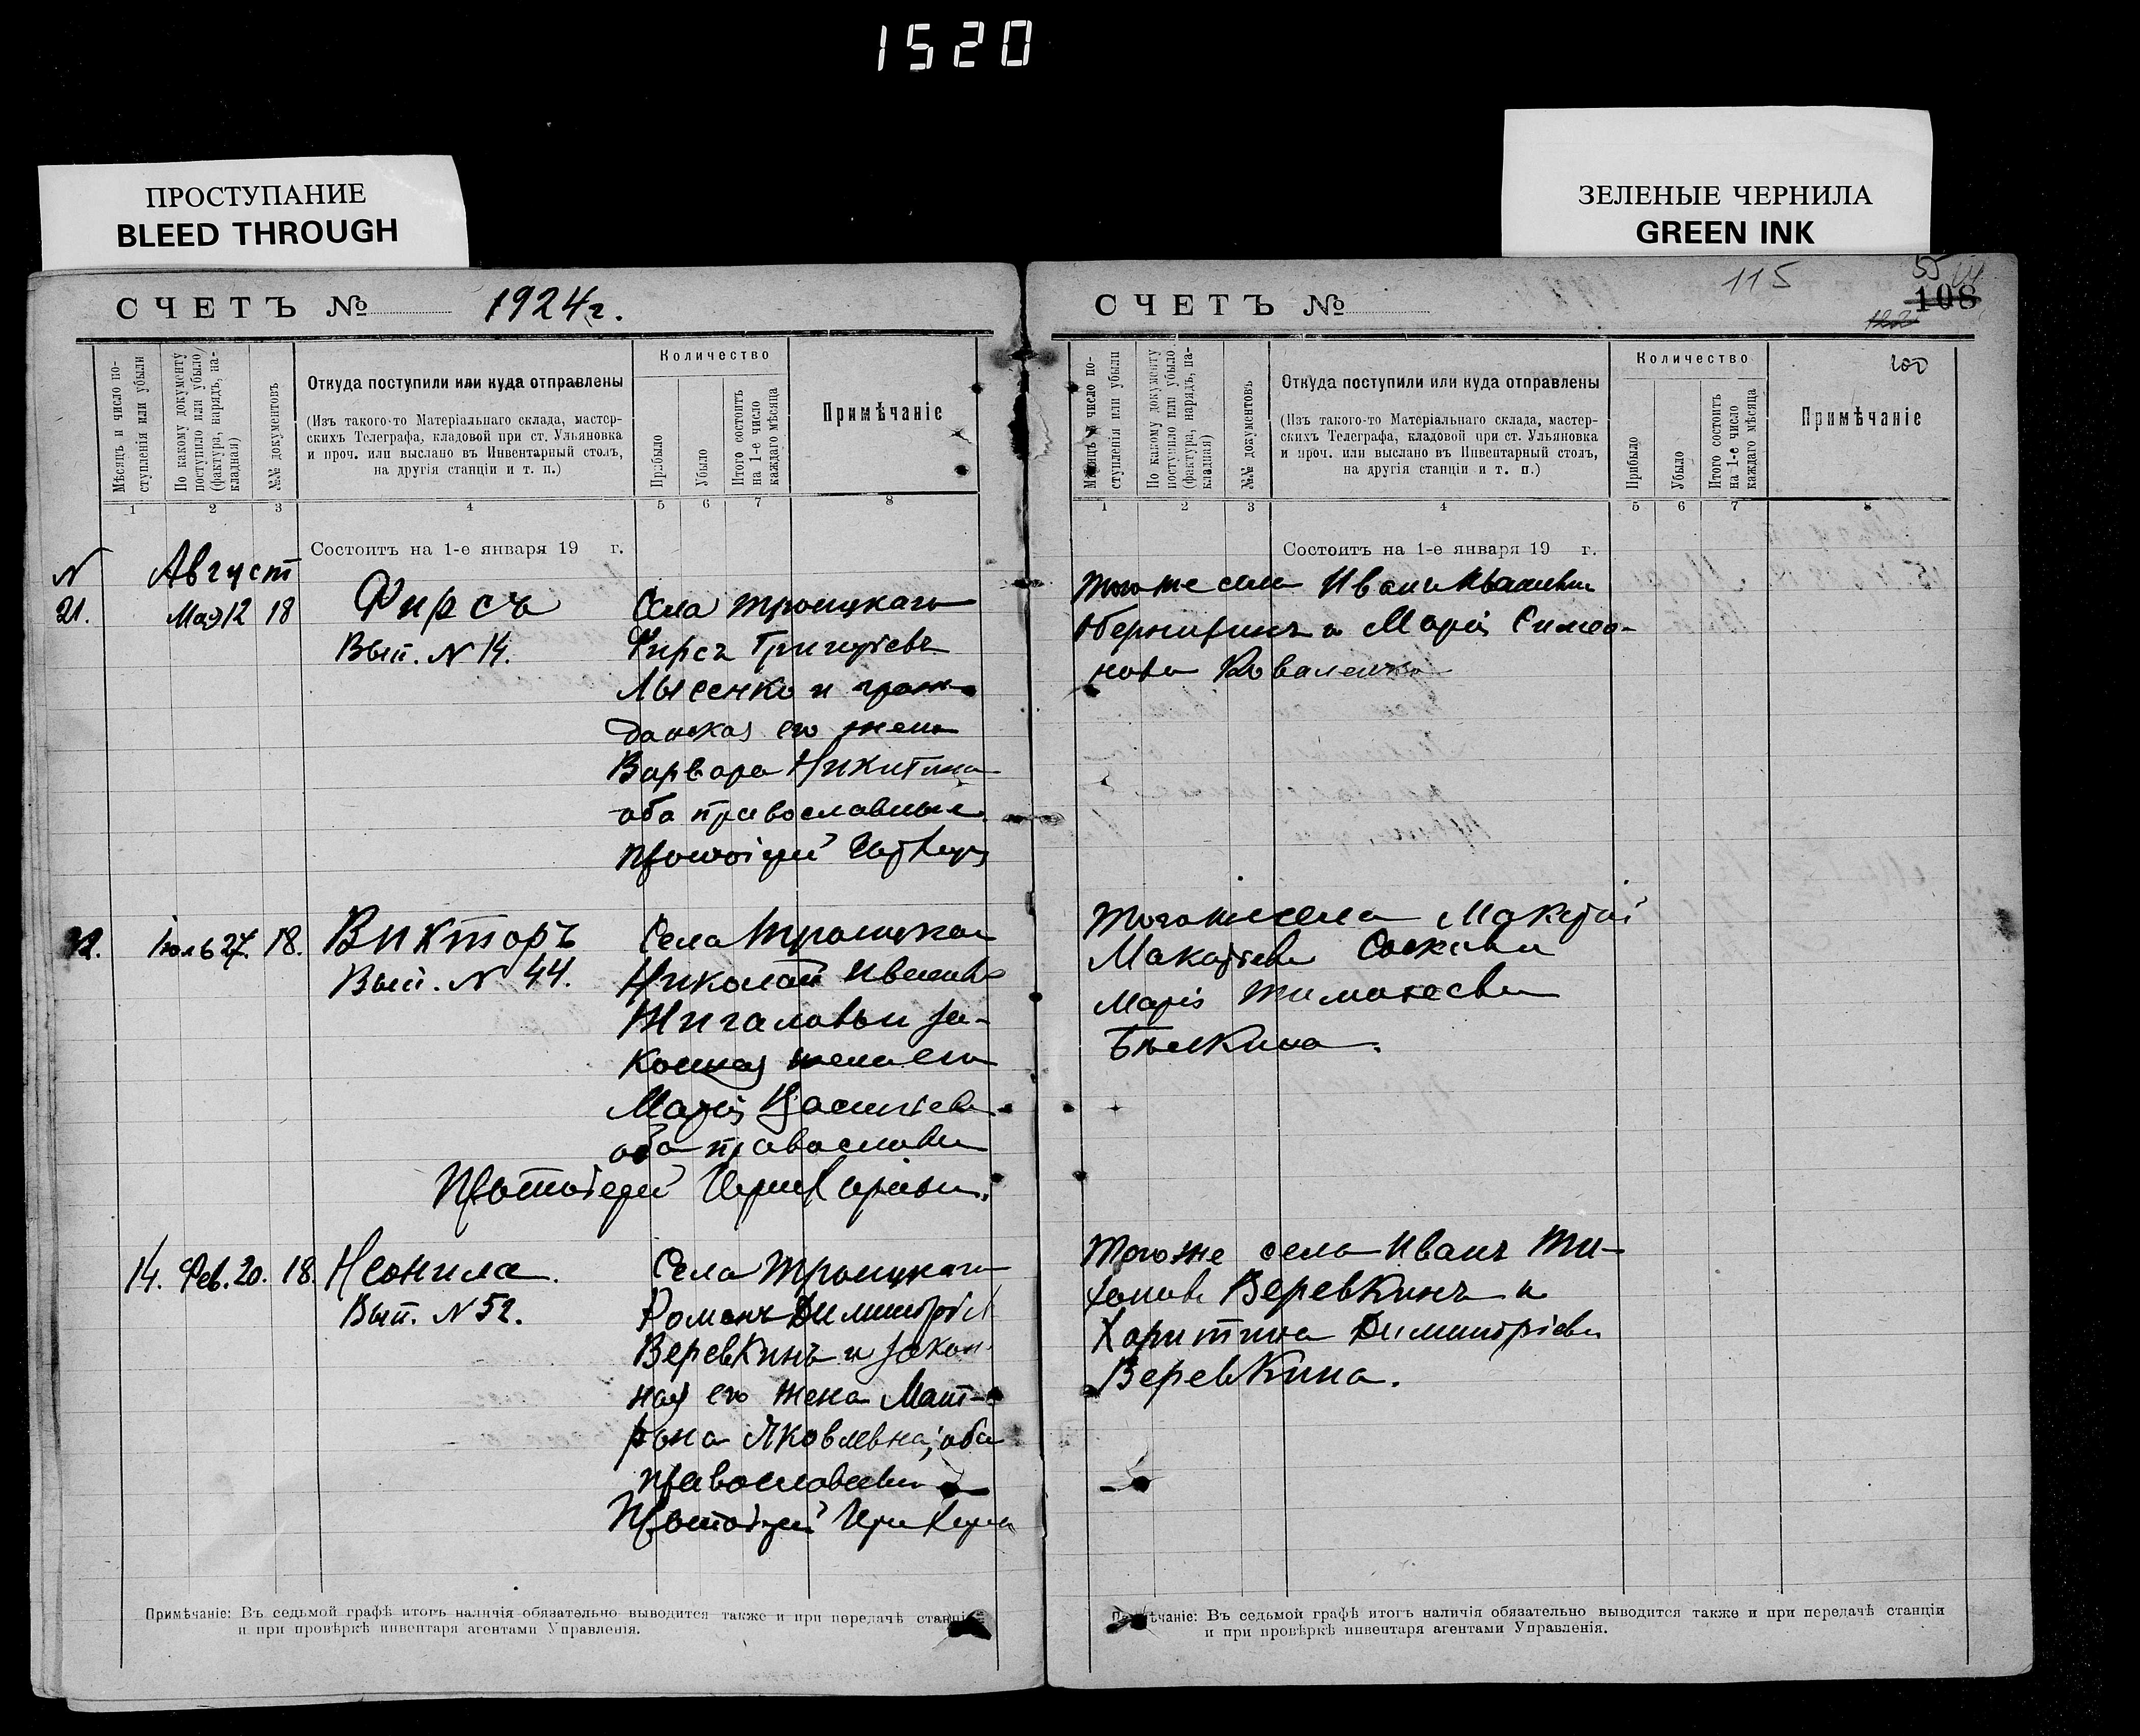 1520
ПРОСТУПАНИЕ
BLEED THROUGH
ЗЕЛЕНЫЕ ЧЕРНИЛА
GREEN INK
СЧЕТЪ № 1924 г.
Мѣсяцъ и число по-
ступленія или убыли
По какому документу
поступило или убыло
(фактура, нарядъ, на-
кладная)
№№ документовъ
Откуда поступили или куда отправлены
(Изъ такого-то Матеріальнаго склада, мастер-
скихъ Телеграфа, кладовой при ст. Ульяновка
и проч. или выслано въ Инвентарный столъ,
на другія станціи и т. п.)
Количество
Прибыло
Убыло
Итого состоитъ
на 1-е число
каждаго мѣсяца
Примѣчаніе
1 2 3 4 5 6 7 8
Состоитъ на 1-е января 19 г.
N Август
21. Мая 12 18 Фирсъ Села Троицкаго
Вып. N 14. Фирсъ Григоріевъ
Лысенко и граж-
данская его жена
Варвара Никитина
оба православные
Протоіерей
Іюль 27. 18. Викторъ Села Троицкаго
Вып. N 44. Николай Ивановъ
Жигаловъ и за-
конная жена его
Марія Васильева
оба православные
Протоіерей
14. Фев. 20. 18. Неонила. Села Троицкаго
Вып. N 52. Романъ Димитріев
Веревкинъ и закон
ная его жена Мат-
рона Яковлевна, оба
православные
Протоіерей
Примѣчаніе: Въ седьмой графѣ итогъ наличія обязательно выводится также и при передачѣ станціи
и при провѣркѣ инвентаря агентами Управленія.
115
55
108
122
СЧЕТЪ №
Мѣсяцъ и число по-
ступленія или убыли
По какому документу
поступило или убыло
(фактура, нарядъ, на-
кладная)
№№ документовъ
Откуда поступили или куда отправлены
(Изъ такого-то Матеріальнаго склада, мастер-
скихъ Телеграфа, кладовой при ст. Ульяновка
и проч. или выслано въ Инвентарный столъ,
на другія станціи и т. п.)
Количество
Прибыло
Убыло
Итого состоитъ
на 1-е число
каждаго мѣсяца
Примѣчаніе
1 2 3 4 5 6 7 8
Состоитъ на 1-е января 19 г.
Того же села Иванъ Ивановъ
и Марія Симео-
нова Коваленко
Того же села Макарій
Макаріевъ
Марія Тимофеева
Бѣлкина.
Того же села Иванъ Ти-
хоновъ Веревкинъ и
Харитина Димитріева
Веревкина.
Примѣчаніе: Въ седьмой графѣ итогъ наличія обязательно выводится также и при передачѣ станціи
и при провѣркѣ инвентаря агентами Управленія.